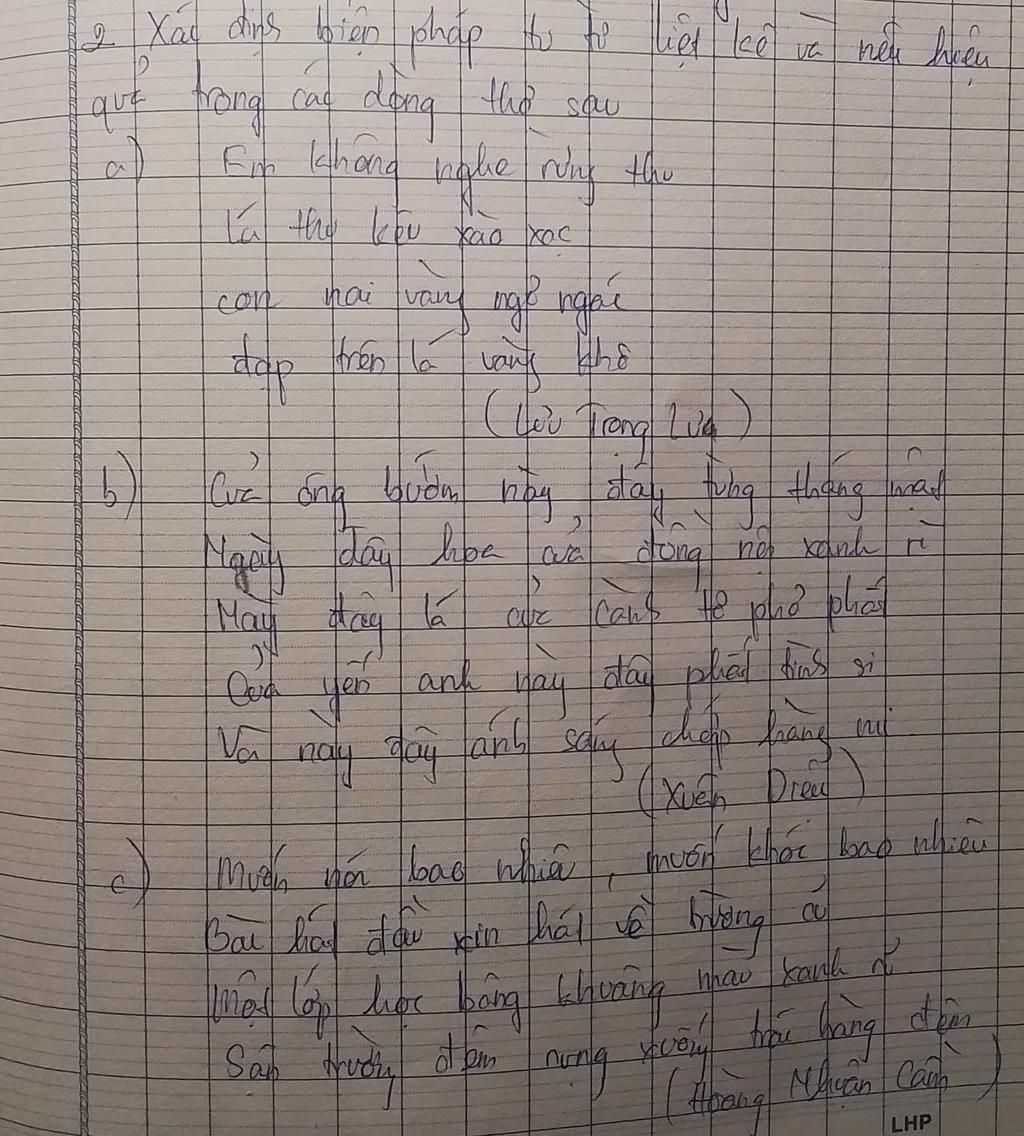 2 Xác định biện pháp tu từ liệt kê và nêu hiệu
quả trong các dòng thơ sau
a) Em không nghe rừng thu
Lá thu kêu xào xạc
con nai vàng ngơ ngác
đạp trên lá vàng khô
(Lưu Trọng Lưu)
b) Của ông bướm này đây tuần tháng mật
Này đây hoa của đồng nội xanh rì
Này đây lá của cành tơ phơ phất
Của yến anh này đây phất tình si
Và này đây ánh sáng chớp hàng mi
(Xuân Diệu)
c) Muốn nói bao nhiêu, muốn khóc bao nhiêu
Bài hát đầu xin hát về trường cũ
Một lớp học bâng khuâng màu xanh rủ
Sân trường đêm rụng xuống trái bàng đêm
(Hoàng Nhuận Cầm)
LHP